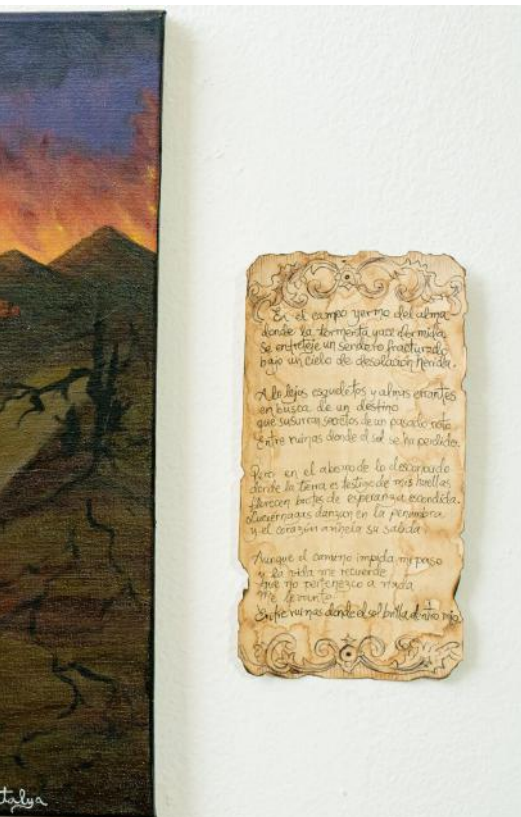 En el campo yermo del alma
donde la tormenta yace dormida
Se entreteje un sendero fracturado
bajo un cielo de desolación herida.
A lo lejos esqueletos y almas errantes
en busca de un destino
que susurran secretos de un pasado roto
Entre ruinas donde el sol se ha perdido.
Pero en el abismo de lo
donde la tierra es testigo de mis huellas
florecen brotes de esperanza escondida.
Luciérnagas danzan en la penumbra
y el corazón anhela su salida
Aunque el camino impida mi paso
y la vida me recuerde
que no pertenezco a nada
me levanto
Entre ruinas donde el sol brilla dentro mío
talya